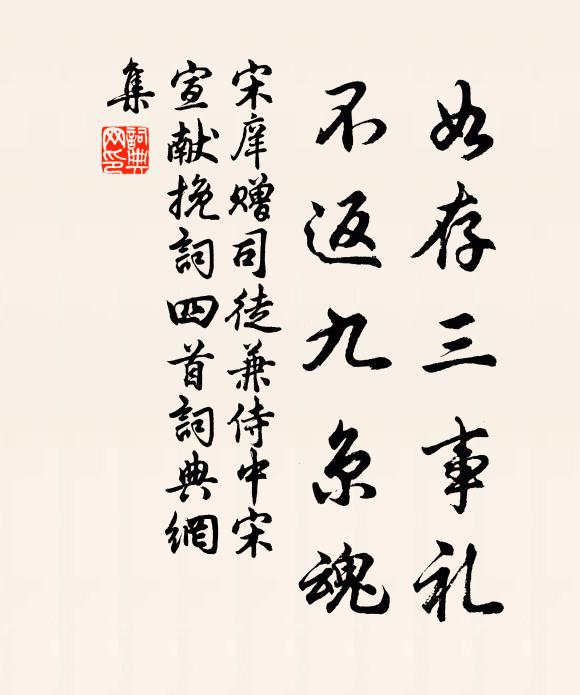 如存三事礼
不返九原魂
宋庠赠司徒兼侍中宋
宣献挽詞四首詞典網
集
詞典网印